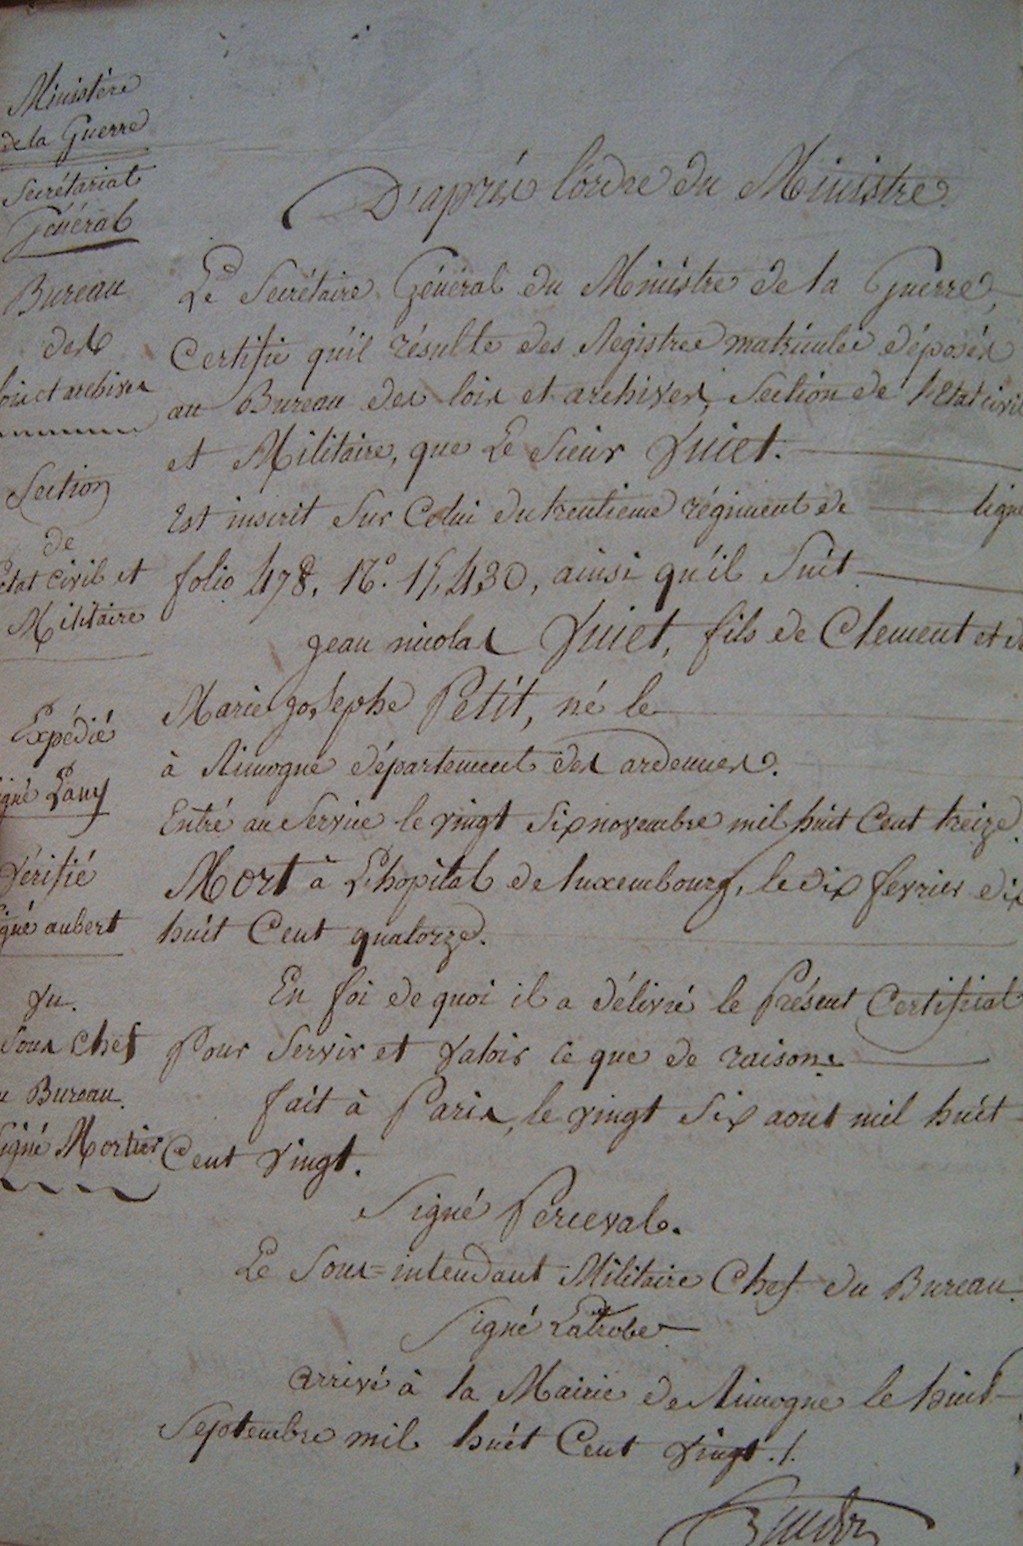 Ministère
de la Guerre
Secrétariat
Général
Bureau
des
lois et archives
Section
de
l'Etat civil et
Militaire
Expédié
Signé
Vérifié
Signé aubert
Vu.
Sous Chef
Bureau.
Signé Mortier
D'après l'ordre du Ministre.
Le Secrétaire Général du Ministre de la Guerre,
Certifie qu'il résulte des Registres matricules déposés
au Bureau des lois et archives, Section de l'Etat civil
et Militaire, que Le Sieur Vuiet.
Est inscrit Sur Celui du trentieme régiment de ligne
folio 478, N°. 15,430, ainsi qu'il Suit
jean nicolas Vuiet, fils de Clement et de
Marie josephe Petit, né le
à Rimogne département des ardennes.
Entré au Service le vingt Six novembre mil huit Cent treize.
Mort à L'hopital de Luxembourg, le dix fevrier dix
huit Cent quatorze.
En foi de quoi il a délivré le Présent Certificat
Pour Servir et Valoir ce que de raison.
fait à Paris, le vingt Six aout mil huit
Cent vingt.
Signé Perceval.
Le Sous=intendant Militaire Chef du Bureau.
Signé Latrobe
arrivé à la Mairie de Rimogne le huit
Septembre mil huit Cent vingt ./.